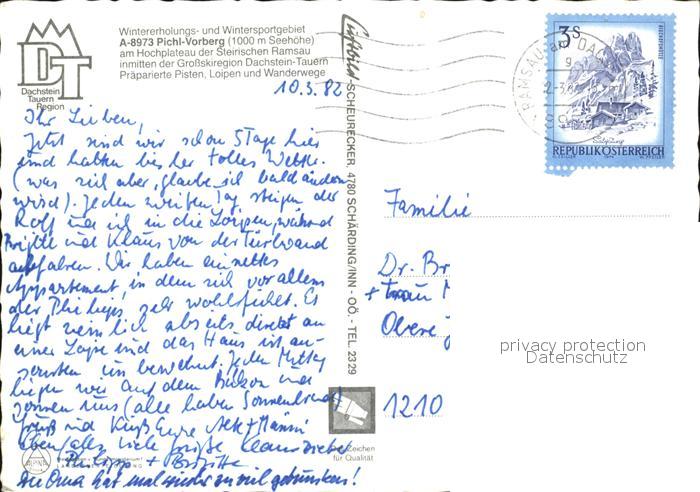 Wintererholungs- und Wintersportgebiet
A-8973 Pichl-Vorberg (1000 m Seehöhe)
am Hochplateau der Steirischen Ramsau
inmitten der Großskiregion Dachstein-Tauern
Präparierte Pisten, Loipen und Wanderwege
DT
Dachstein
Tauern
Region
10.3.82
Ihr Lieben,
Jetzt sind wir schon 5 Tage hier
und hatten bisher tolles Wetter.
(was sich aber, glaube ich bald ändern
wird). Jeden zweiten Tag steigen der
Rolf und ich in die Loipen, während
Brigitte und Klaus von der Türlwand
abfahren. Wir haben ein nettes
Appartement, in dem sich vor allem
der Philipp sehr wohlfühlt. Es
liegt ziemlich abseits direkt an
einer Loipe und das Haus ist an-
sonsten unbewohnt. Jeden Mittag
liegen wir auf dem Balkon und
sonnen uns (alle haben Sonnenbrand)
Gruß und Kuß Eure
ebenfalls viele Grüße Klaus
Philipp + Brigitte
die Oma hat mal wieder zu viel getrunken!
Luftbild-SCHEURECKER, 4780 SCHÄRDING/INN - OÖ. - TEL. 2329
RAMSAU am DACH
3 S
REPUBLIK ÖSTERREICH
Familie
Dr. Br
+ Frau
Obere
1210
privacy protection
Datenschutz
ALPINA
für Qualität